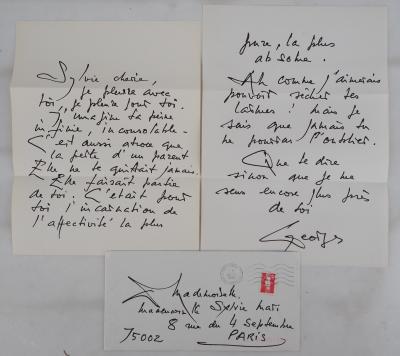 Sylvie chérie,
je pleure avec
toi, je pleure pour toi.
J'imagine ta peine
infinie, inconsolable.
C'est aussi atroce que
la perte d'un parent
Elle ne te quittait jamais.
Elle faisait partie
de toi. C'était pour
toi l'incarnation de
l'affectivité la plus
pure, la plus
absolue.
Ah comme j'aimerais
pouvoir sécher tes
larmes ! Mais je
sais que jamais tu
ne pourras l'oublier.
Que te dire
sinon que je me
sens encore plus près
de toi
Georges
Mademoiselle
Sylvie
8 rue du 4 Septembre
75002 PARIS